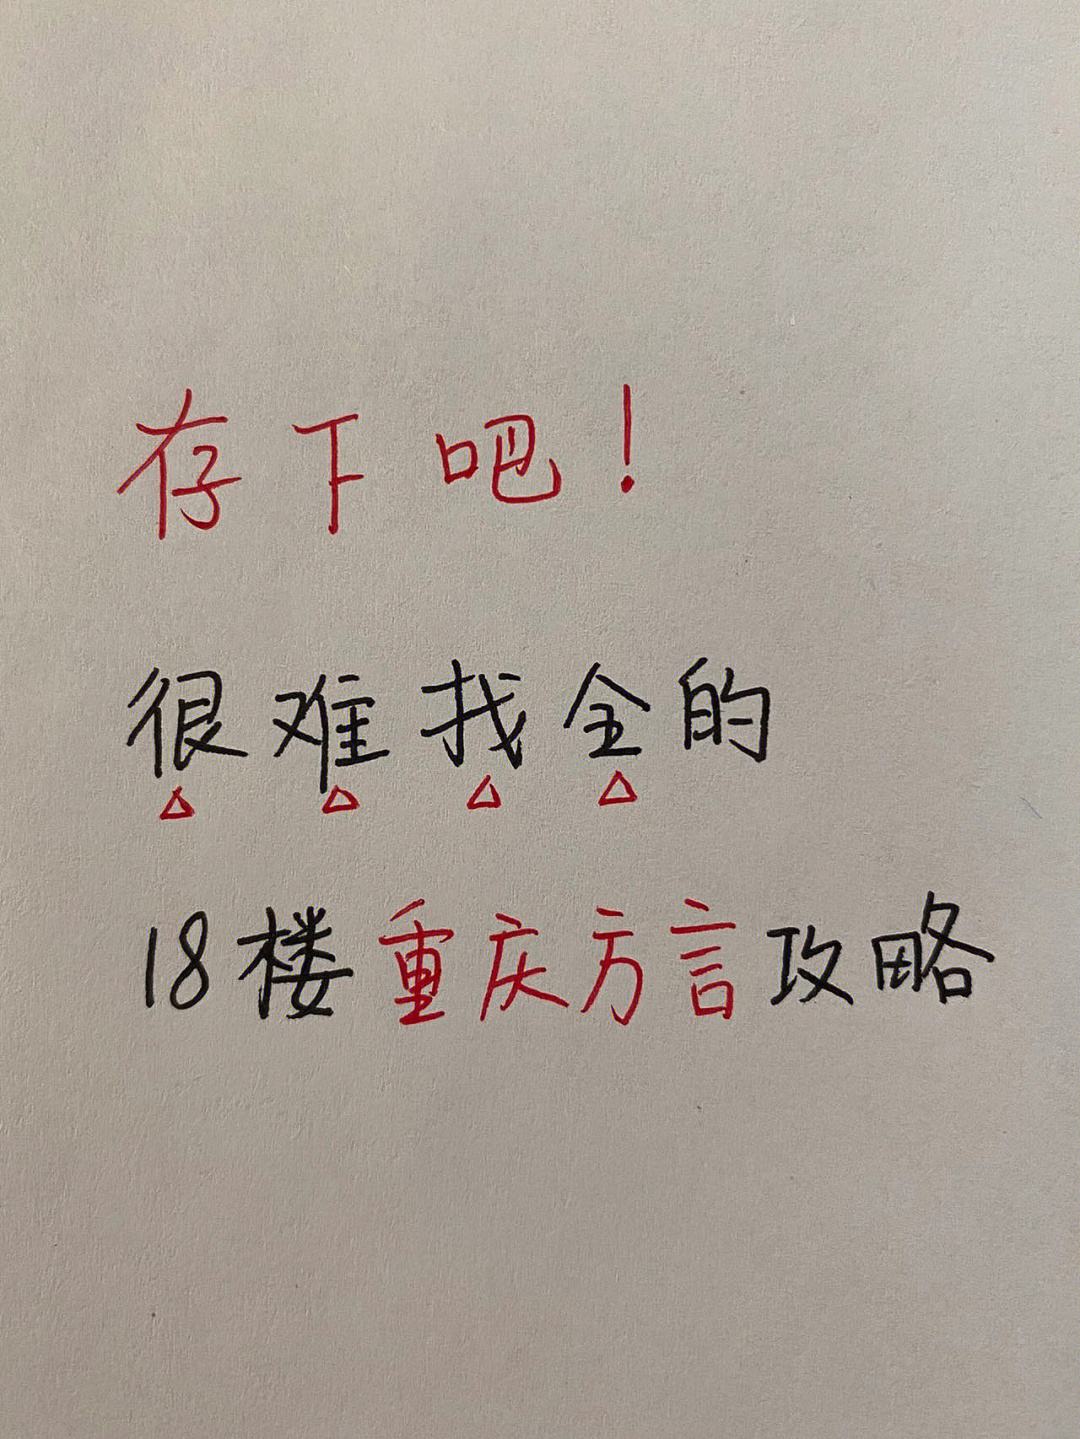 存下吧！
很难找全的
18楼重庆方言攻略